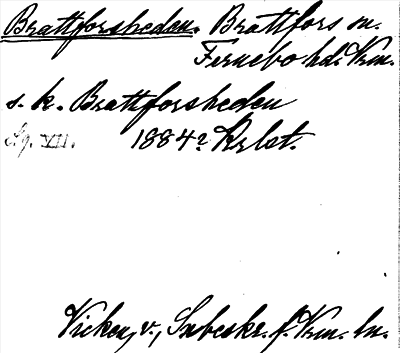 Brattforsheden. Brattfors sn.
Fernebo hd. Vrm.
s. k. Brattforsheden
Sg. VII. 1884? Krlst.
Vicken, v., Inbeskr. f. Vrm. ln.